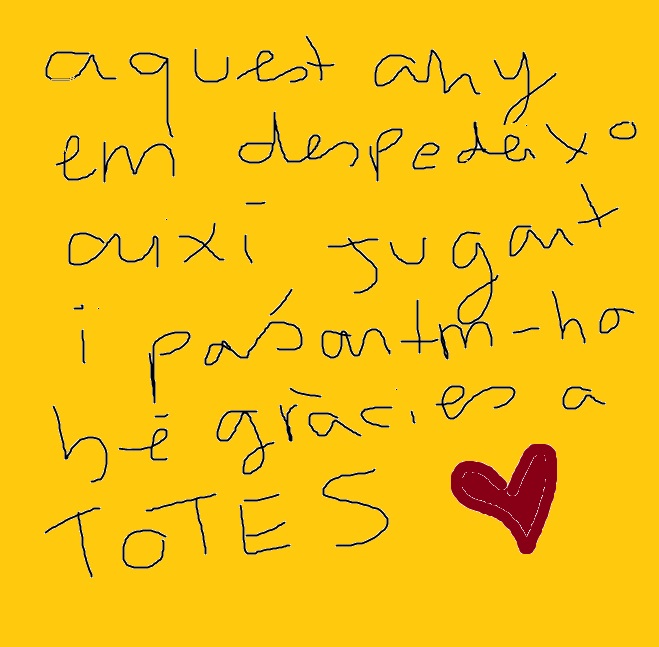 aquest any
em despedeixo
aixi jugant
i pasantm-ho
bé gràcies a
TOTES